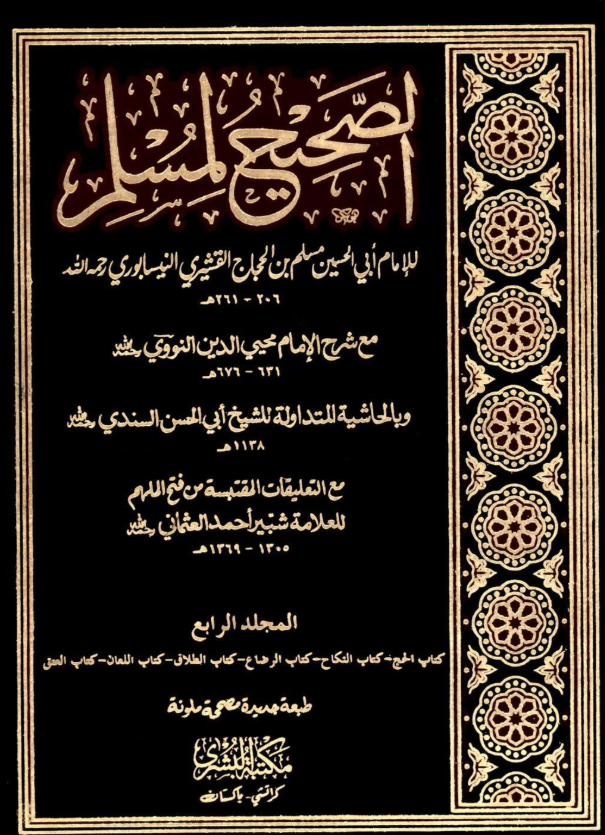 الصحيح لمسلم
للإمام أبي الحسين مسلم بن الحجاج القشيري النيسابوري رحمه الله
٢٠٦ - ٢٦١هـ
مع شرح الإمام محيي الدين النووي رحمه الله
٦٣١ - ٦٧٦هـ
وبالحاشية المتداولة للشيخ أبي الحسن السندي رحمه الله
١١٣٨هـ
مع التعليقات المقتبسة من فتح الملهم
للعلامة شبير أحمد العثماني رحمه الله
١٣٠٥ - ١٣٦٩هـ
المجلد الرابع
كتاب الحج - كتاب النكاح - كتاب الرضاع - كتاب الطلاق - كتاب اللعان - كتاب العتق
طبعة جديدة مصححة ملونة
مكتبة البشرى
كراتشي - باكستان